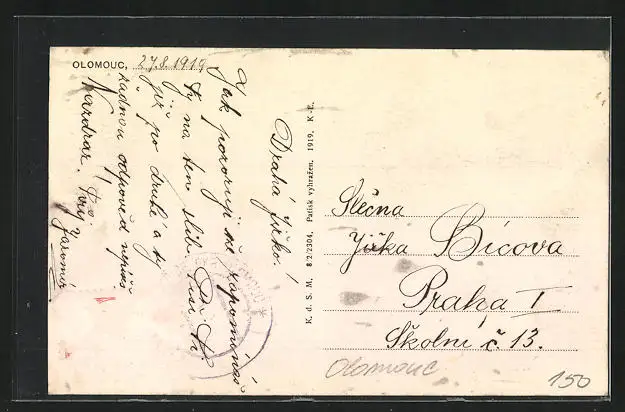 OLOMOUC, 27.8.1919
Drahá Jiřko!
Jak pozoruji že zapomínáš
ty na ten slib. Píši Ti
již po druhé a ty
žádnou odpověd nepíšeš
Nazdar. Tvůj
Jaromír
K. d. S. M. 82/2304. Patisk vyhražen. 1919. K.-E.
Slečna
Jiřka Bícova
Praha I
Školní č 13.
Olomouc
150